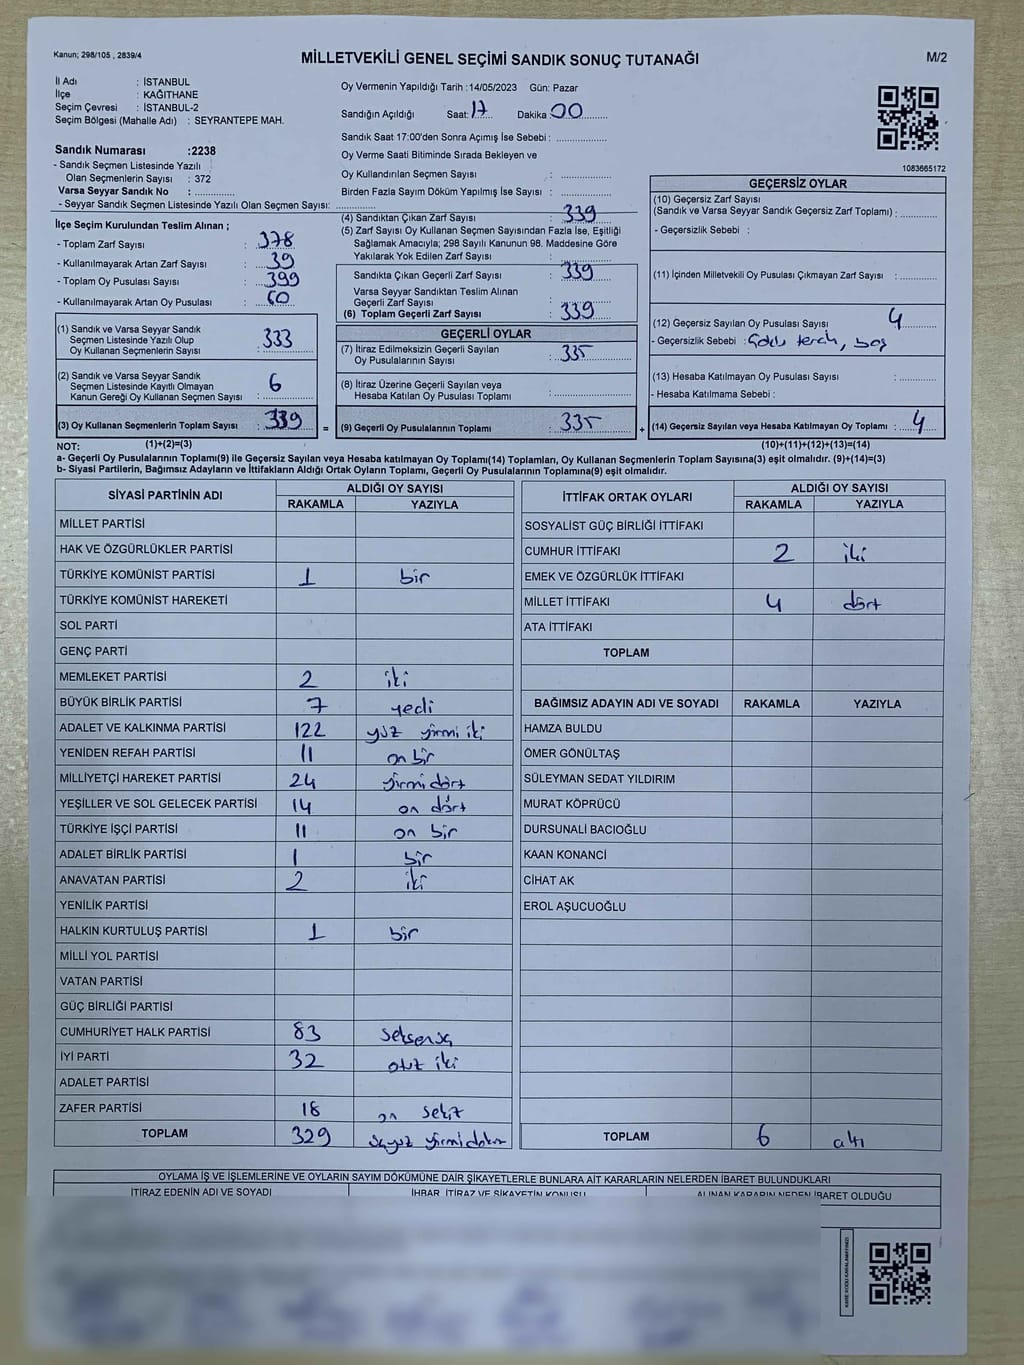 Kanun; 298/105 , 2839/4
MİLLETVEKİLİ GENEL SEÇİMİ SANDIK SONUÇ TUTANAĞI
M/2
İl Adı : İSTANBUL
İlçe : KAĞITHANE
Seçim Çevresi : İSTANBUL-2
Seçim Bölgesi (Mahalle Adı) : SEYRANTEPE MAH.
Sandık Numarası :2238
- Sandık Seçmen Listesinde Yazılı
Olan Seçmenlerin Sayısı : 372
Varsa Seyyar Sandık No :
- Seyyar Sandık Seçmen Listesinde Yazılı Olan Seçmen Sayısı:
Oy Vermenin Yapıldığı Tarih :14/05/2023 Gün: Pazar
Sandığın Açıldığı Saat: 17 Dakika 00
Sandık Saat 17:00'den Sonra Açılmış İse Sebebi :
Oy Verme Saati Bitiminde Sırada Bekleyen ve
Oy Kullandırılan Seçmen Sayısı :
Birden Fazla Sayım Döküm Yapılmış İse Sayısı :
1083665172
İlçe Seçim Kurulundan Teslim Alınan ;
- Toplam Zarf Sayısı : 378
- Kullanılmayarak Artan Zarf Sayısı : 39
- Toplam Oy Pusulası Sayısı : 399
- Kullanılmayarak Artan Oy Pusulası : 60
(1) Sandık ve Varsa Seyyar Sandık
Seçmen Listesinde Yazılı Olup
Oy Kullanan Seçmenlerin Sayısı : 333
(2) Sandık ve Varsa Seyyar Sandık
Seçmen Listesinde Kayıtlı Olmayan
Kanun Gereği Oy Kullanan Seçmen Sayısı : 6
(3) Oy Kullanan Seçmenlerin Toplam Sayısı : 339
(1)+(2)=(3)
(4) Sandıktan Çıkan Zarf Sayısı : 339
(5) Zarf Sayısı Oy Kullanan Seçmen Sayısından Fazla İse, Eşitliği
Sağlamak Amacıyla; 298 Sayılı Kanunun 98. Maddesine Göre
Yakılarak Yok Edilen Zarf Sayısı :
Sandıkta Çıkan Geçerli Zarf Sayısı : 339
Varsa Seyyar Sandıktan Teslim Alınan
Geçerli Zarf Sayısı :
(6) Toplam Geçerli Zarf Sayısı : 339
GEÇERLİ OYLAR
(7) İtiraz Edilmeksizin Geçerli Sayılan
Oy Pusulalarının Sayısı : 335
(8) İtiraz Üzerine Geçerli Sayılan veya
Hesaba Katılan Oy Pusulası Toplamı :
= (9) Geçerli Oy Pusulalarının Toplamı : 335
GEÇERSİZ OYLAR
(10) Geçersiz Zarf Sayısı
(Sandık ve Varsa Seyyar Sandık Geçersiz Zarf Toplamı) :
- Geçersizlik Sebebi :
(11) İçinden Milletvekili Oy Pusulası Çıkmayan Zarf Sayısı :
(12) Geçersiz Sayılan Oy Pusulası Sayısı : 4
- Geçersizlik Sebebi : Çoklu tercih, boş
(13) Hesaba Katılmayan Oy Pusulası Sayısı :
- Hesaba Katılmama Sebebi :
+ (14) Geçersiz Sayılan veya Hesaba Katılmayan Oy Toplamı : 4
(10)+(11)+(12)+(13)=(14)
NOT:
a- Geçerli Oy Pusulalarının Toplamı(9) ile Geçersiz Sayılan veya Hesaba katılmayan Oy Toplamı(14) Toplamları, Oy Kullanan Seçmenlerin Toplam Sayısına(3) eşit olmalıdır. (9)+(14)=(3)
b- Siyasi Partilerin, Bağımsız Adayların ve İttifakların Aldığı Ortak Oyların Toplamı, Geçerli Oy Pusulalarının Toplamına(9) eşit olmalıdır.
SİYASİ PARTİNİN ADI ALDIĞI OY SAYISI
RAKAMLA YAZIYLA
MİLLET PARTİSİ
HAK VE ÖZGÜRLÜKLER PARTİSİ
TÜRKİYE KOMÜNİST PARTİSİ 1 bir
TÜRKİYE KOMÜNİST HAREKETİ
SOL PARTİ
GENÇ PARTİ
MEMLEKET PARTİSİ 2 iki
BÜYÜK BİRLİK PARTİSİ 7 yedi
ADALET VE KALKINMA PARTİSİ 122 yüz yirmi iki
YENİDEN REFAH PARTİSİ 11 on bir
MİLLİYETÇİ HAREKET PARTİSİ 24 yirmi dört
YEŞİLLER VE SOL GELECEK PARTİSİ 14 on dört
TÜRKİYE İŞÇİ PARTİSİ 11 on bir
ADALET BİRLİK PARTİSİ 1 bir
ANAVATAN PARTİSİ 2 iki
YENİLİK PARTİSİ
HALKIN KURTULUŞ PARTİSİ 1 bir
MİLLİ YOL PARTİSİ
VATAN PARTİSİ
GÜÇ BİRLİĞİ PARTİSİ
CUMHURİYET HALK PARTİSİ 83 seksen üç
İYİ PARTİ 32 otuz iki
ADALET PARTİSİ
ZAFER PARTİSİ 18 on sekiz
TOPLAM 329 üçyüz yirmi dokuz
İTTİFAK ORTAK OYLARI ALDIĞI OY SAYISI
RAKAMLA YAZIYLA
SOSYALİST GÜÇ BİRLİĞİ İTTİFAKI
CUMHUR İTTİFAKI 2 iki
EMEK VE ÖZGÜRLÜK İTTİFAKI
MİLLET İTTİFAKI 4 dört
ATA İTTİFAKI
TOPLAM
BAĞIMSIZ ADAYIN ADI VE SOYADI RAKAMLA YAZIYLA
HAMZA BULDU
ÖMER GÖNÜLTAŞ
SÜLEYMAN SEDAT YILDIRIM
MURAT KÖPRÜCÜ
DURSUNALİ BACIOĞLU
KAAN KONANCİ
CİHAT AK
EROL AŞUCUOĞLU
TOPLAM 6 altı
OYLAMA İŞ VE İŞLEMLERİNE VE OYLARIN SAYIM DÖKÜMÜNE DAİR ŞİKAYETLERLE BUNLARA AİT KARARLARIN NELERDEN İBARET BULUNDUKLARI
İTİRAZ EDENİN ADI VE SOYADI İHBAR, İTİRAZ VE ŞİKAYETİN KONUSU ALINAN KARARIN NEDEN İBARET OLDUĞU